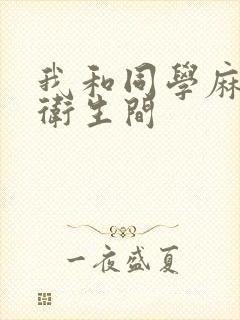 我和同學麻
衛生間
一夜盛夏